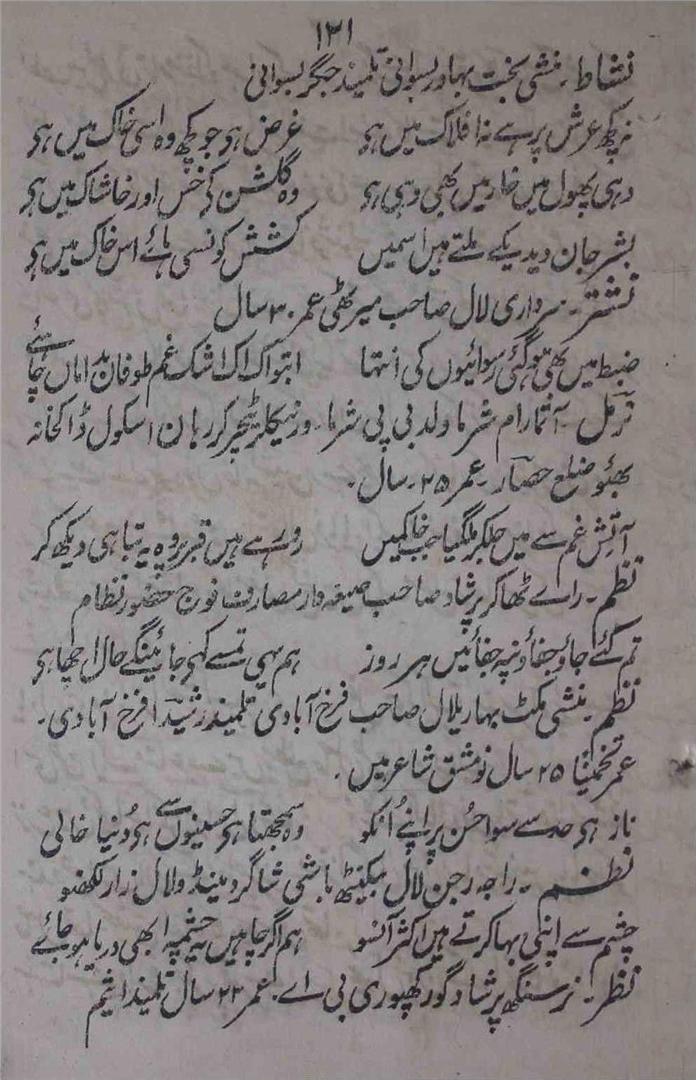 ۱۳۱
نشاط۔ منشی بخت بہادر بسوانی تلمیذ جگر بسوانی
نہ کچھ عرش پر ہے نہ افلاک میں ہو غرض ہو جو کچھ وہ اسی خاک میں ہو
وہی پھول میں خار میں بھی وہی ہو وہ گلشن کی خس اور خاشاک میں ہو
بشر جان دیدیکے ملتے ہیں اسمیں کشش کونسی ہائے اس خاک میں ہو
نشتر۔ سرداری لال صاحب میرٹھی عمر ۳۰ سال
ضبط میں بھی ہوگئی رسوائیوں کی انتہا ابتو اک اک اشک غم طوفان بداماں چاہئے
نرمل۔ آتمارام شرما ولد بی پی شرما۔ ورنیکلر ٹیچر کررہان اسکول ڈاکخانہ
بھٹو ضلع حصار۔ عمر ۲۵ سال۔
آتش غم سے میں جلکر ملگیا جب خاکمیں رورہے ہیں قبر پر وہ یہ تباہی دیکھ کر
نظم۔ راے ٹھاکر پرشاد صاحب صیغہ دار مصارف فوج حضور نظام
تم کئے جاؤ جفاؤنپہ جفائیں ہر روز ہم یہی تمسے کہو جائینگے حال اچھا ہو
نظم۔ منشی مکٹ بہاریلال صاحب فرخ آبادی تلمیذ رشید افرخ آبادی۔
عمر تخمیناً ۲۵ سال نومشق شاعر میں۔
ناز ہو حد سے سوا حسن پر اپنے اُنکو وہ سمجھتا ہو حسینوں سے ہو دُنیا خالی
نظم۔ راجہ رجن لال بیکنیٹھ باشی شاگرد مینڈو لال زار لکھنو
چشم سے اپنی بہا کرتے ہیں اکثر آنسو ہم اگر چاہیں یہ چشمہ ابھی دریا ہوجائے
نظر۔ نرسنگھ پرشاد گورکھپوری بی اے۔ عمر ۲۲ سال تلمیذ اثیم